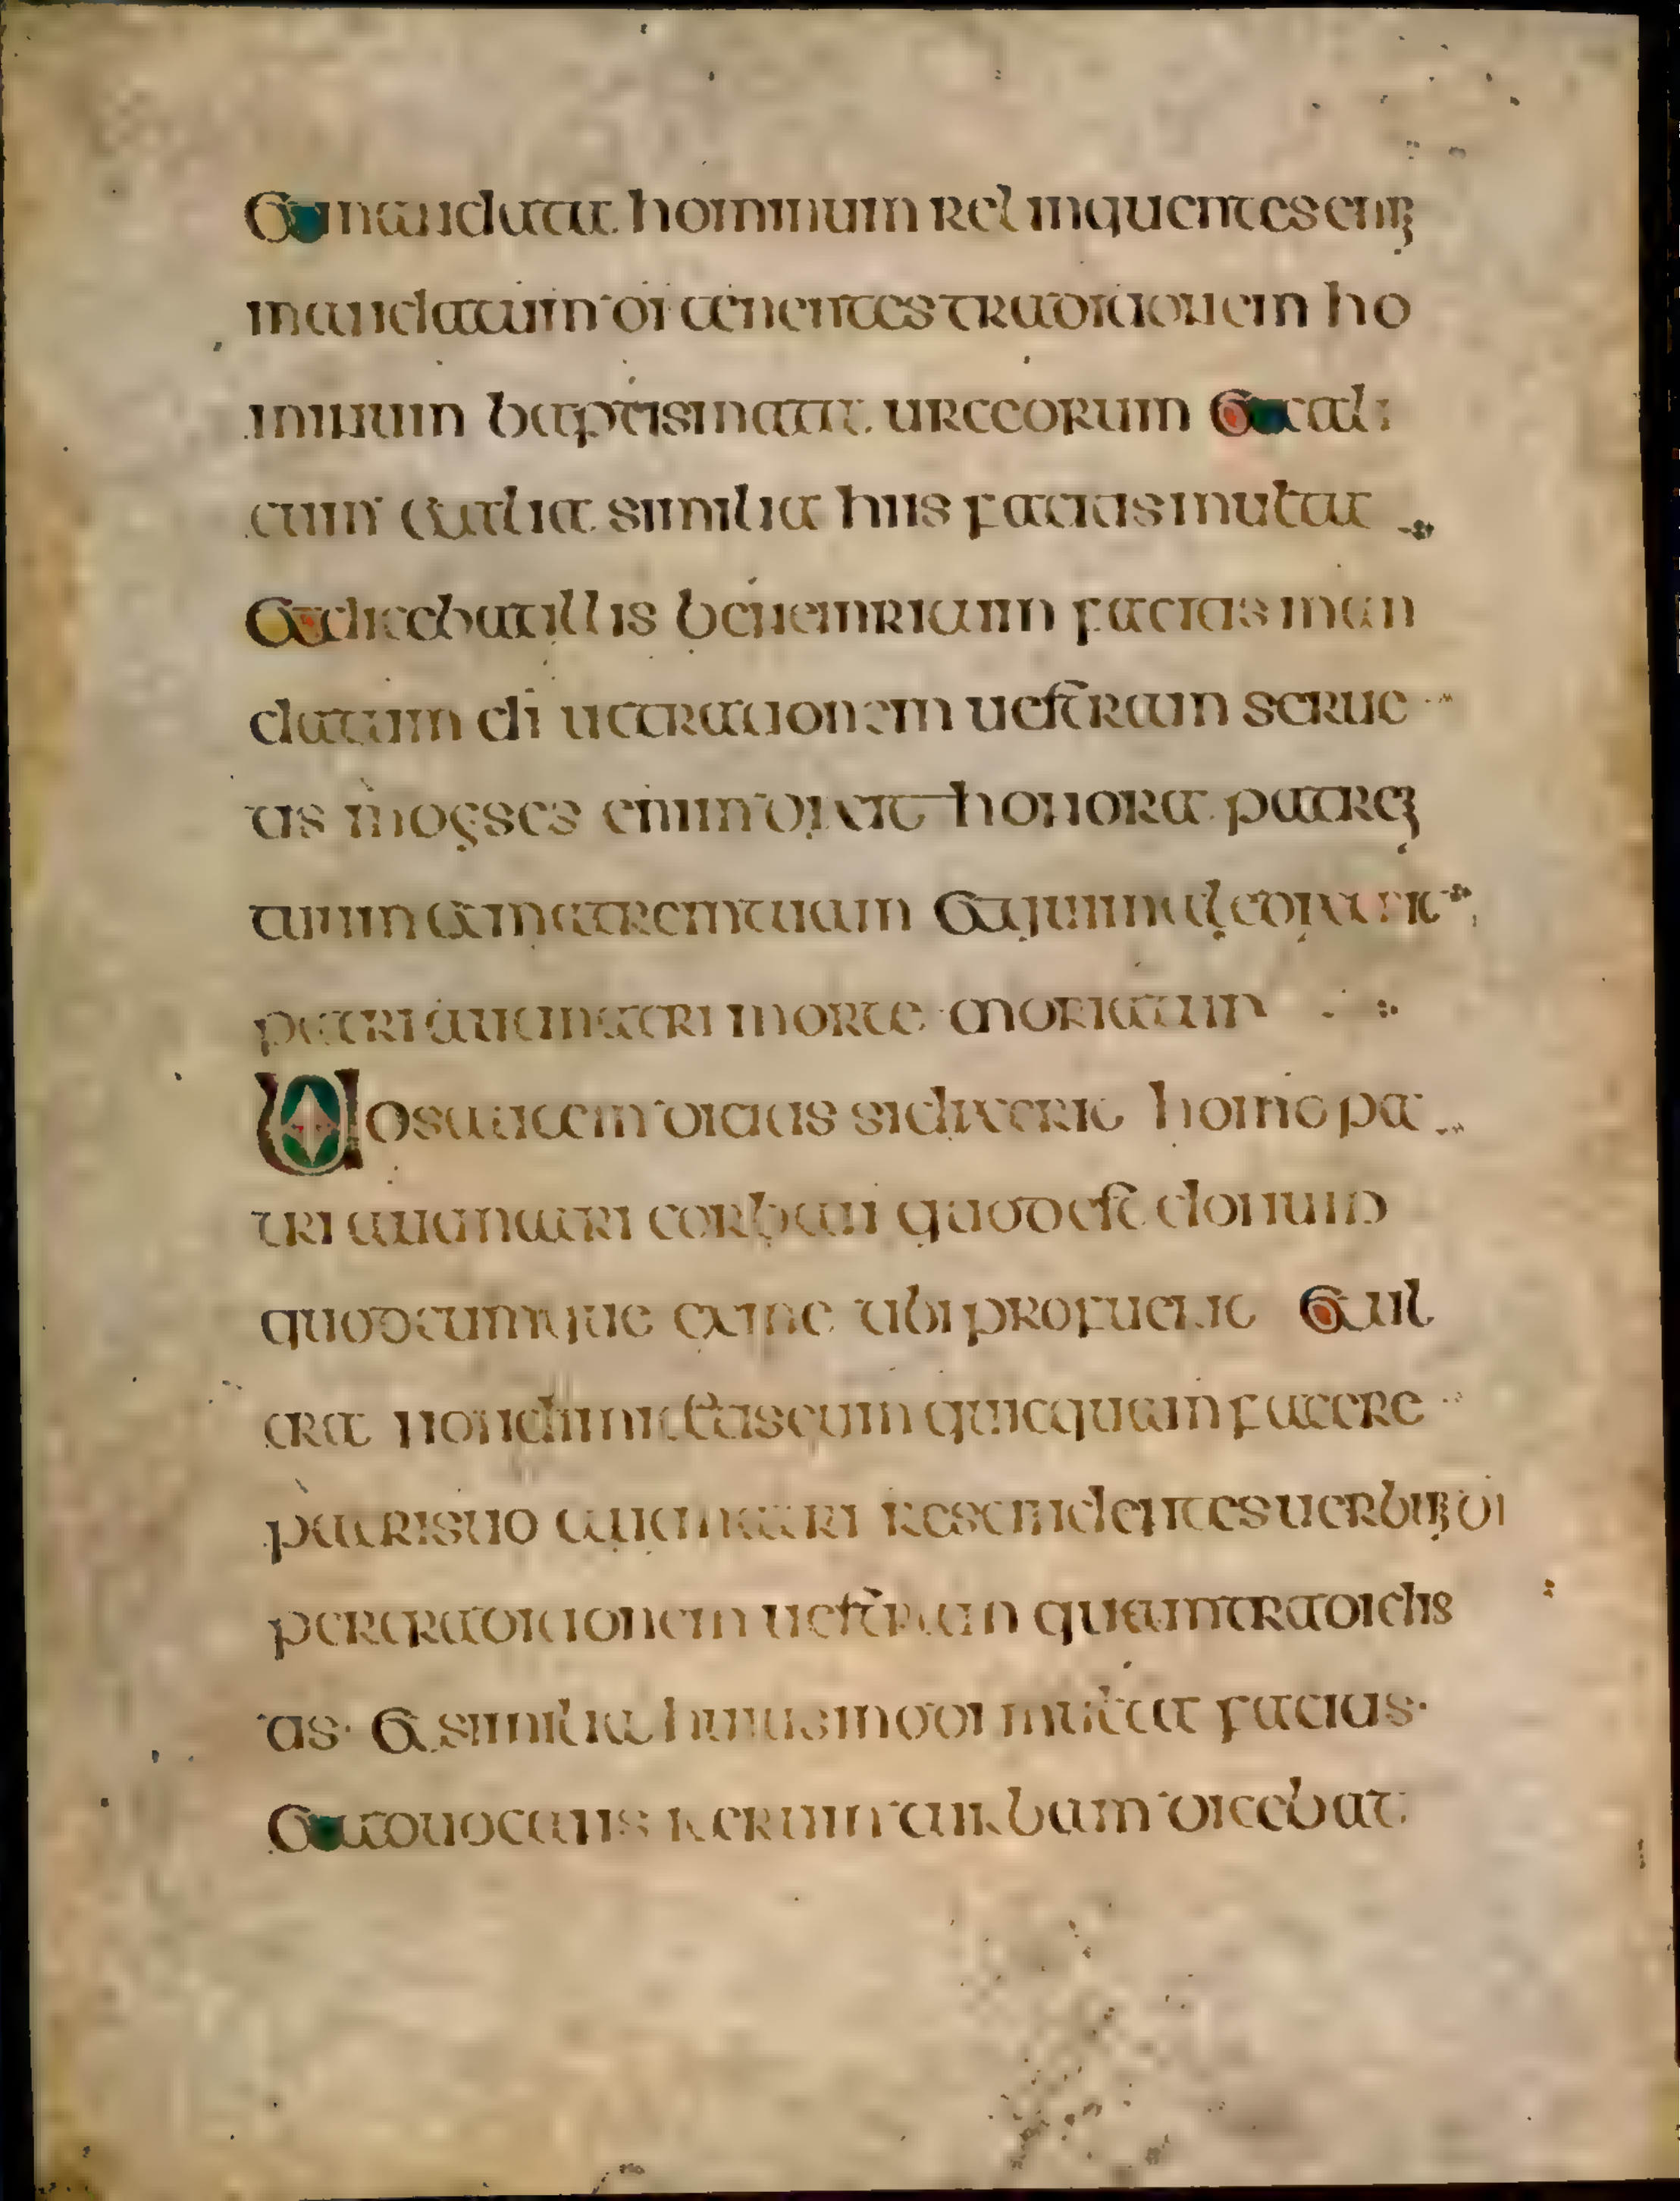 Et mandata hominum relinquentes eniꝫ
mandatum di tenentes traditionem ho
minum baptismata urceorum et cali
cum et alia similia hiis facitis multa
Et dicebat illis bene inritum facitis man
datum di ut traditionem uestram serue
tis moyses enim dixit honora patreꝫ
tuum et matrem tuam et qui maledixerit
patri aut matri morte moriatur
Uos autem dicitis si dixerit homo pa
tri aut matri corban quod est donum
quodcumque ex me tibi profuerit et ul
tra non dimittitis eum quicquam facere
patri suo aut matri rescindentes uerbuꝫ di
per traditionem uestram quam tradidis
tis et similia huiusmodi multa facitis
Et aduocans iterum turbam dicebat